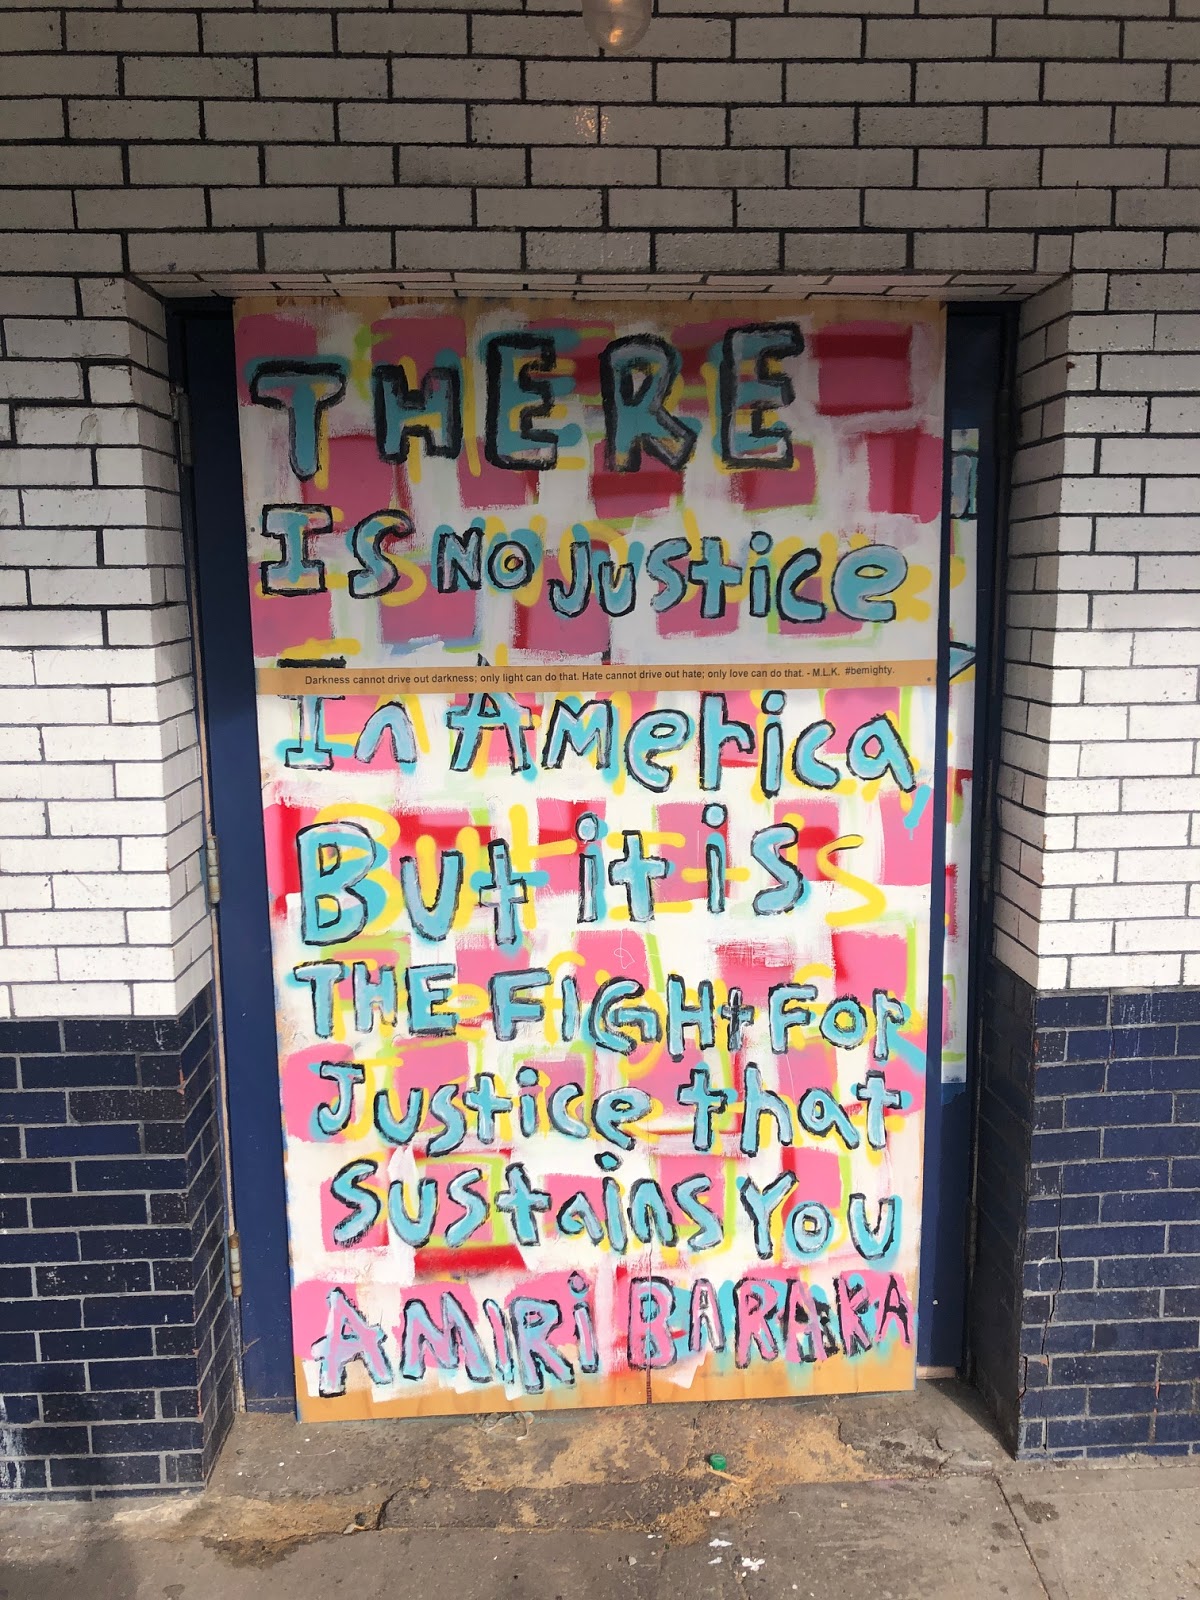 THERE
Is No Justice
Darkness cannot drive out darkness; only light can do that. Hate cannot drive out hate; only love can do that. - M.L.K. #bemighty.
In America,
But it is
THE FIGHt FOr
Justice that
sustains You
AMIRi BARAKA